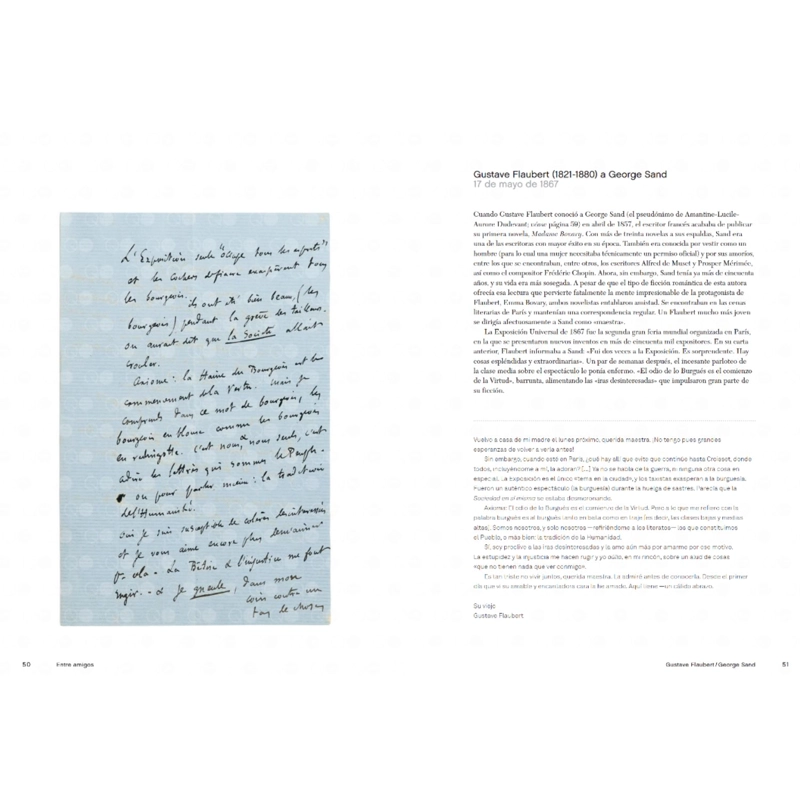 L'Exposition seule "occupe tous les esprits"
et les cochers de fiacre exaspèrent tous
les bourgeois. ils ont été bien beaux, (les
bourgeois) pendant la grève des tailleurs.
on aurait dit que la Société allait
crouler.
Axiome : la Haine du Bourgeois est le
commencement de la Vertu. mais je
comprends dans ce mot de bourgeois, les
bourgeois en blouse comme les bourgeois
en redingotte. C'est nous, & nous seuls, c'est
à dire les lettrés qui sommes le Peuple.
ou pour parler mieux : la tradition
de l'Humanité.
oui je suis susceptible de colères désintéressées
et je vous aime encore plus de m'aimer
p. cela. La Bêtise & l'injustice me font
rugir. - & je gueule, dans mon
coin contre un
tas de choses
50
Entre amigos
Gustave Flaubert (1821-1880) a George Sand
17 de mayo de 1867
Cuando Gustave Flaubert conoció a George Sand (el pseudónimo de Amantine-Lucile-
Aurore Dudevant; véase página 59) en abril de 1857, el escritor francés acababa de publicar
su primera novela, Madame Bovary. Con más de treinta novelas a sus espaldas, Sand era
una de las escritoras con mayor éxito en su época. También era conocida por vestir como un
hombre (para lo cual una mujer necesitaba técnicamente un permiso oficial) y por sus amoríos,
entre los que se encontraban, entre otros, los escritores Alfred de Musset y Prosper Mérimée,
así como el compositor Frédéric Chopin. Ahora, sin embargo, Sand tenía ya más de cincuenta
años, y su vida era más sosegada. A pesar de que el tipo de ficción romántica de esta autora
ofrecía esa lectura que pervierte fatalmente la mente impresionable de la protagonista de
Flaubert, Emma Bovary, ambos novelistas entablaron amistad. Se encontraban en las cenas
literarias de París y mantenían una correspondencia regular. Un Flaubert mucho más joven
se dirigía afectuosamente a Sand como «maestra».
La Exposición Universal de 1867 fue la segunda gran feria mundial organizada en París,
en la que se presentaron nuevos inventos en más de cincuenta mil expositores. En su carta
anterior, Flaubert informaba a Sand: «Fui dos veces a la Exposición. Es sorprendente. Hay
cosas espléndidas y extraordinarias». Un par de semanas después, el incesante parloteo de
la clase media sobre el espectáculo le ponía enfermo. «El odio de lo Burgués es el comienzo
de la Virtud», barrunta, alimentando las «iras desinteresadas» que impulsaron gran parte de
su ficción.
Vuelvo a casa de mi madre el lunes próximo, querida maestra. ¡No tengo pues grandes
esperanzas de volver a verla antes!
Sin embargo, cuando esté en París, ¿qué hay allí que evite que continúe hasta Croisset, donde
todos, incluyéndome a mí, la adoran? [...] Ya no se habla de la guerra, ni ninguna otra cosa en
especial. La exposición es el único «tema en la ciudad», y los taxistas exasperan a la burguesía.
Fueron un auténtico espectáculo (la burguesía) durante la huelga de sastres. Parecía que la
Sociedad en sí misma se estaba desmoronando.
Axioma: El odio de lo Burgués es el comienzo de la Virtud. Pero a lo que me refiero con la
palabra burgués es al burgués tanto en bata como en traje (es decir, las clases bajas y medias
altas). Somos nosotros, y solo nosotros —refiriéndome a los literatos— los que constituimos
el Pueblo, o más bien: la tradición de la Humanidad.
Sí, soy proclivo a las iras desinteresadas y la amo aún más por amarme por ese motivo.
La estupidez y la injusticia me hacen rugir y yo aúllo, en mi rincón, sobre un alud de cosas
«que no tienen nada que ver conmigo».
Es tan triste no vivir juntos, querida maestra. La admiré antes de conocerla. Desde el primer
día que vi su amable y encantadora cara la he amado. Aquí tiene —un cálido abrazo.
Su viejo
Gustave Flaubert
Gustave Flaubert / George Sand
51